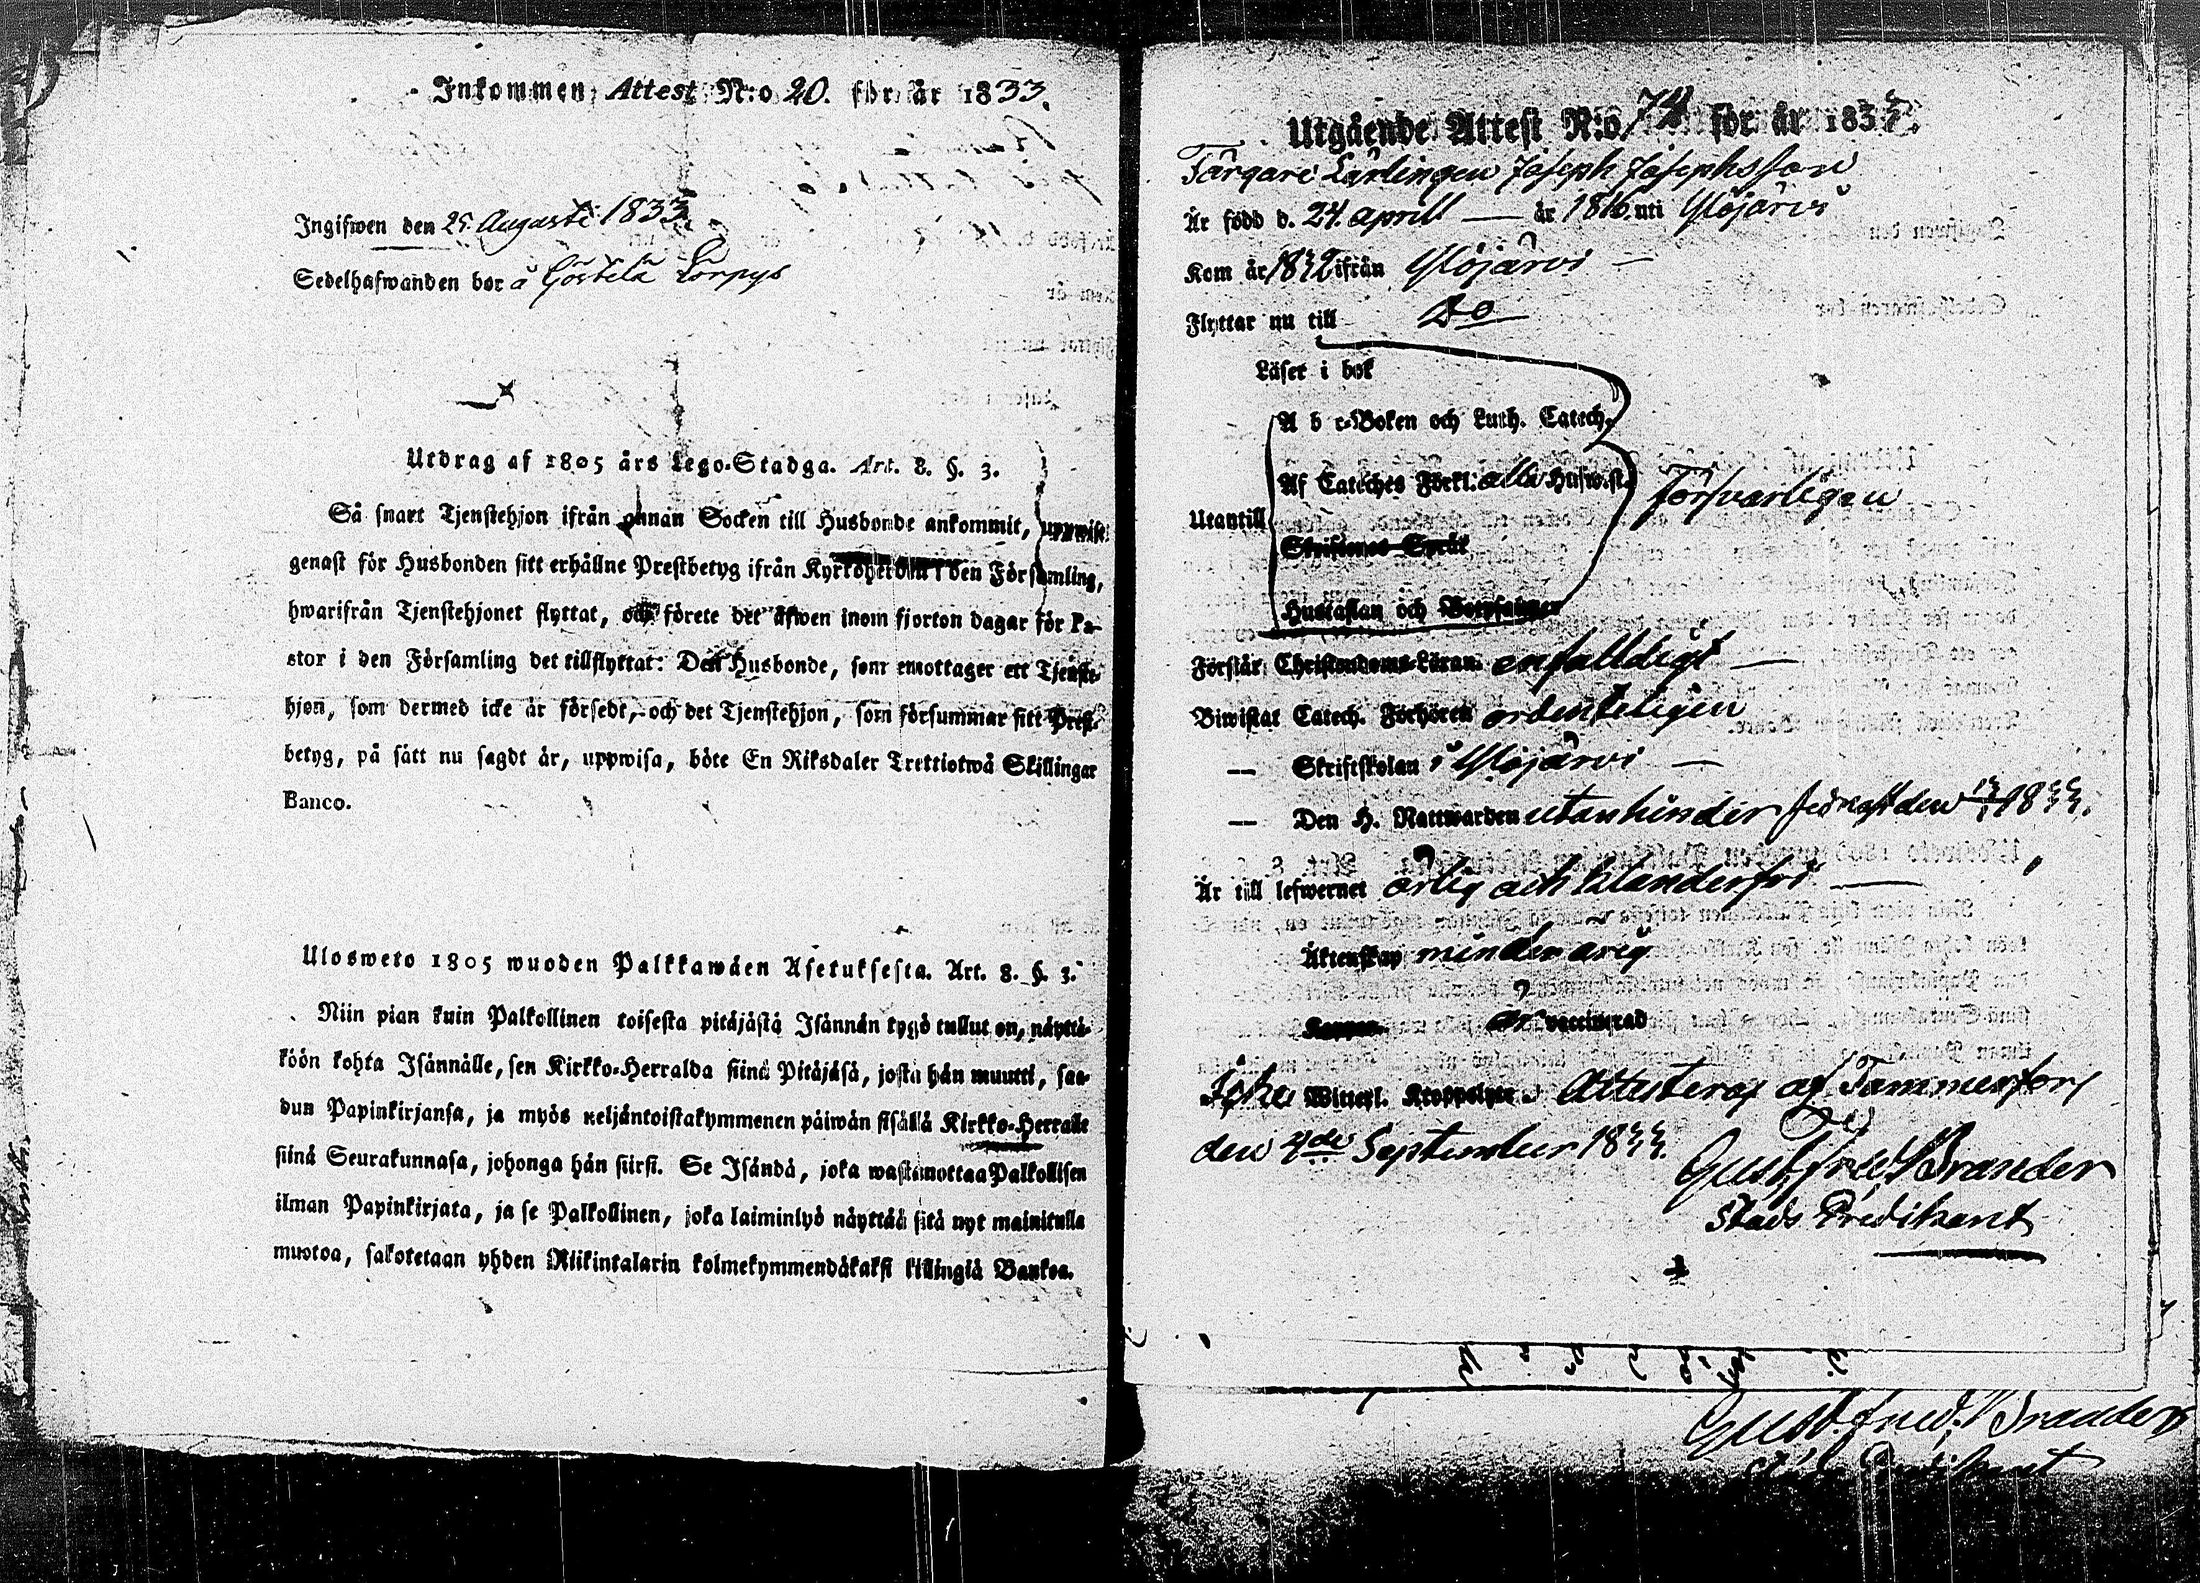 Inkommen Attest N:o 20. för år 1833.
Ingifwen den 25 Augusti 1833
Sedelhafwanden bor å
Utdrag af 1805 års Lego-Stadga. Art. 8. §. 3.
Så snart Tjenstehjon ifrån annan Socken till Husbonde ankommit, uppwise
genast för Husbonden sitt erhållne Prestbetyg ifrån Kyrkoherden i den Församling,
hwarifrån Tjenstehjonet flyttat, och förete det äfwen inom fjorton dagar för Pa-
stor i den Församling det tillflyttat: Den Husbonde, som emottager ett Tjenste-
hjon, som dermed icke är försedt, och det Tjenstehjon, som försummar sitt Prest-
betyg, på sätt nu sagdt är, uppwisa, böte En Riksdaler Trettiotwå Skillingar
Banco.
Ulosweto 1805 wuoden Palkkawäen Asetuksesta. Art. 8. §. 3.
Niin pian kuin Palkollinen toisesta pitäjästä Isännän tygö tullut on, näyttä-
köön kohta Isännälle, sen Kirkko-Herralda siinä Pitäjäsä, josta hän muutti, saa-
dun Papinkirjansa, ja myös neljäntoistakymmenen päiwän sisällä Kirkko-Herralle
siinä Seurakunnasa, johonga hän siirsi. Se Isändä, joka wastanottaa Palkollisen
ilman Papinkirjata, ja se Palkollinen, joka laiminlyö näyttää sitä nyt mainitulla
muotoa, sakotetaan yhden Riikintalarin kolmekymmendäkaksi killingiä Bankoa.
Utgående Attest N:o 74 för år 1833.
Färgare Lärlingen Joseph Josephsson
Är född d. 24 aprill — år 1816 uti Ylöjärvi
Kom år 1832 ifrån Ylöjärvi —
Flyttar nu till Do
Läser i bok
A b c-Boken och Luth. Catech.
Af Cateches Förkl. alla Husw.st.
Utantill
Försvarligen
Skriftenes Språk
Hustaflan och Botpsalmer
Förstår Christendoms-Läran enfalldigt —
Biwistat Catech. Förhören ordenteligen
— Skriftskolan i Ylöjärvi —
— Den H. Nattwarden utan hinder sednast den 1833.
Är till lefwernet ärlig och klanderfri —
Äktenskap minderårig
Koppor är vaccinerad
Icke Witterl. Kroppslyte. Attesteras af Tammerfors
den 4de September 1833.
Gust. Fred. Brander
Stads Predikant
Gust. Fred. Brander
Stads Predikant